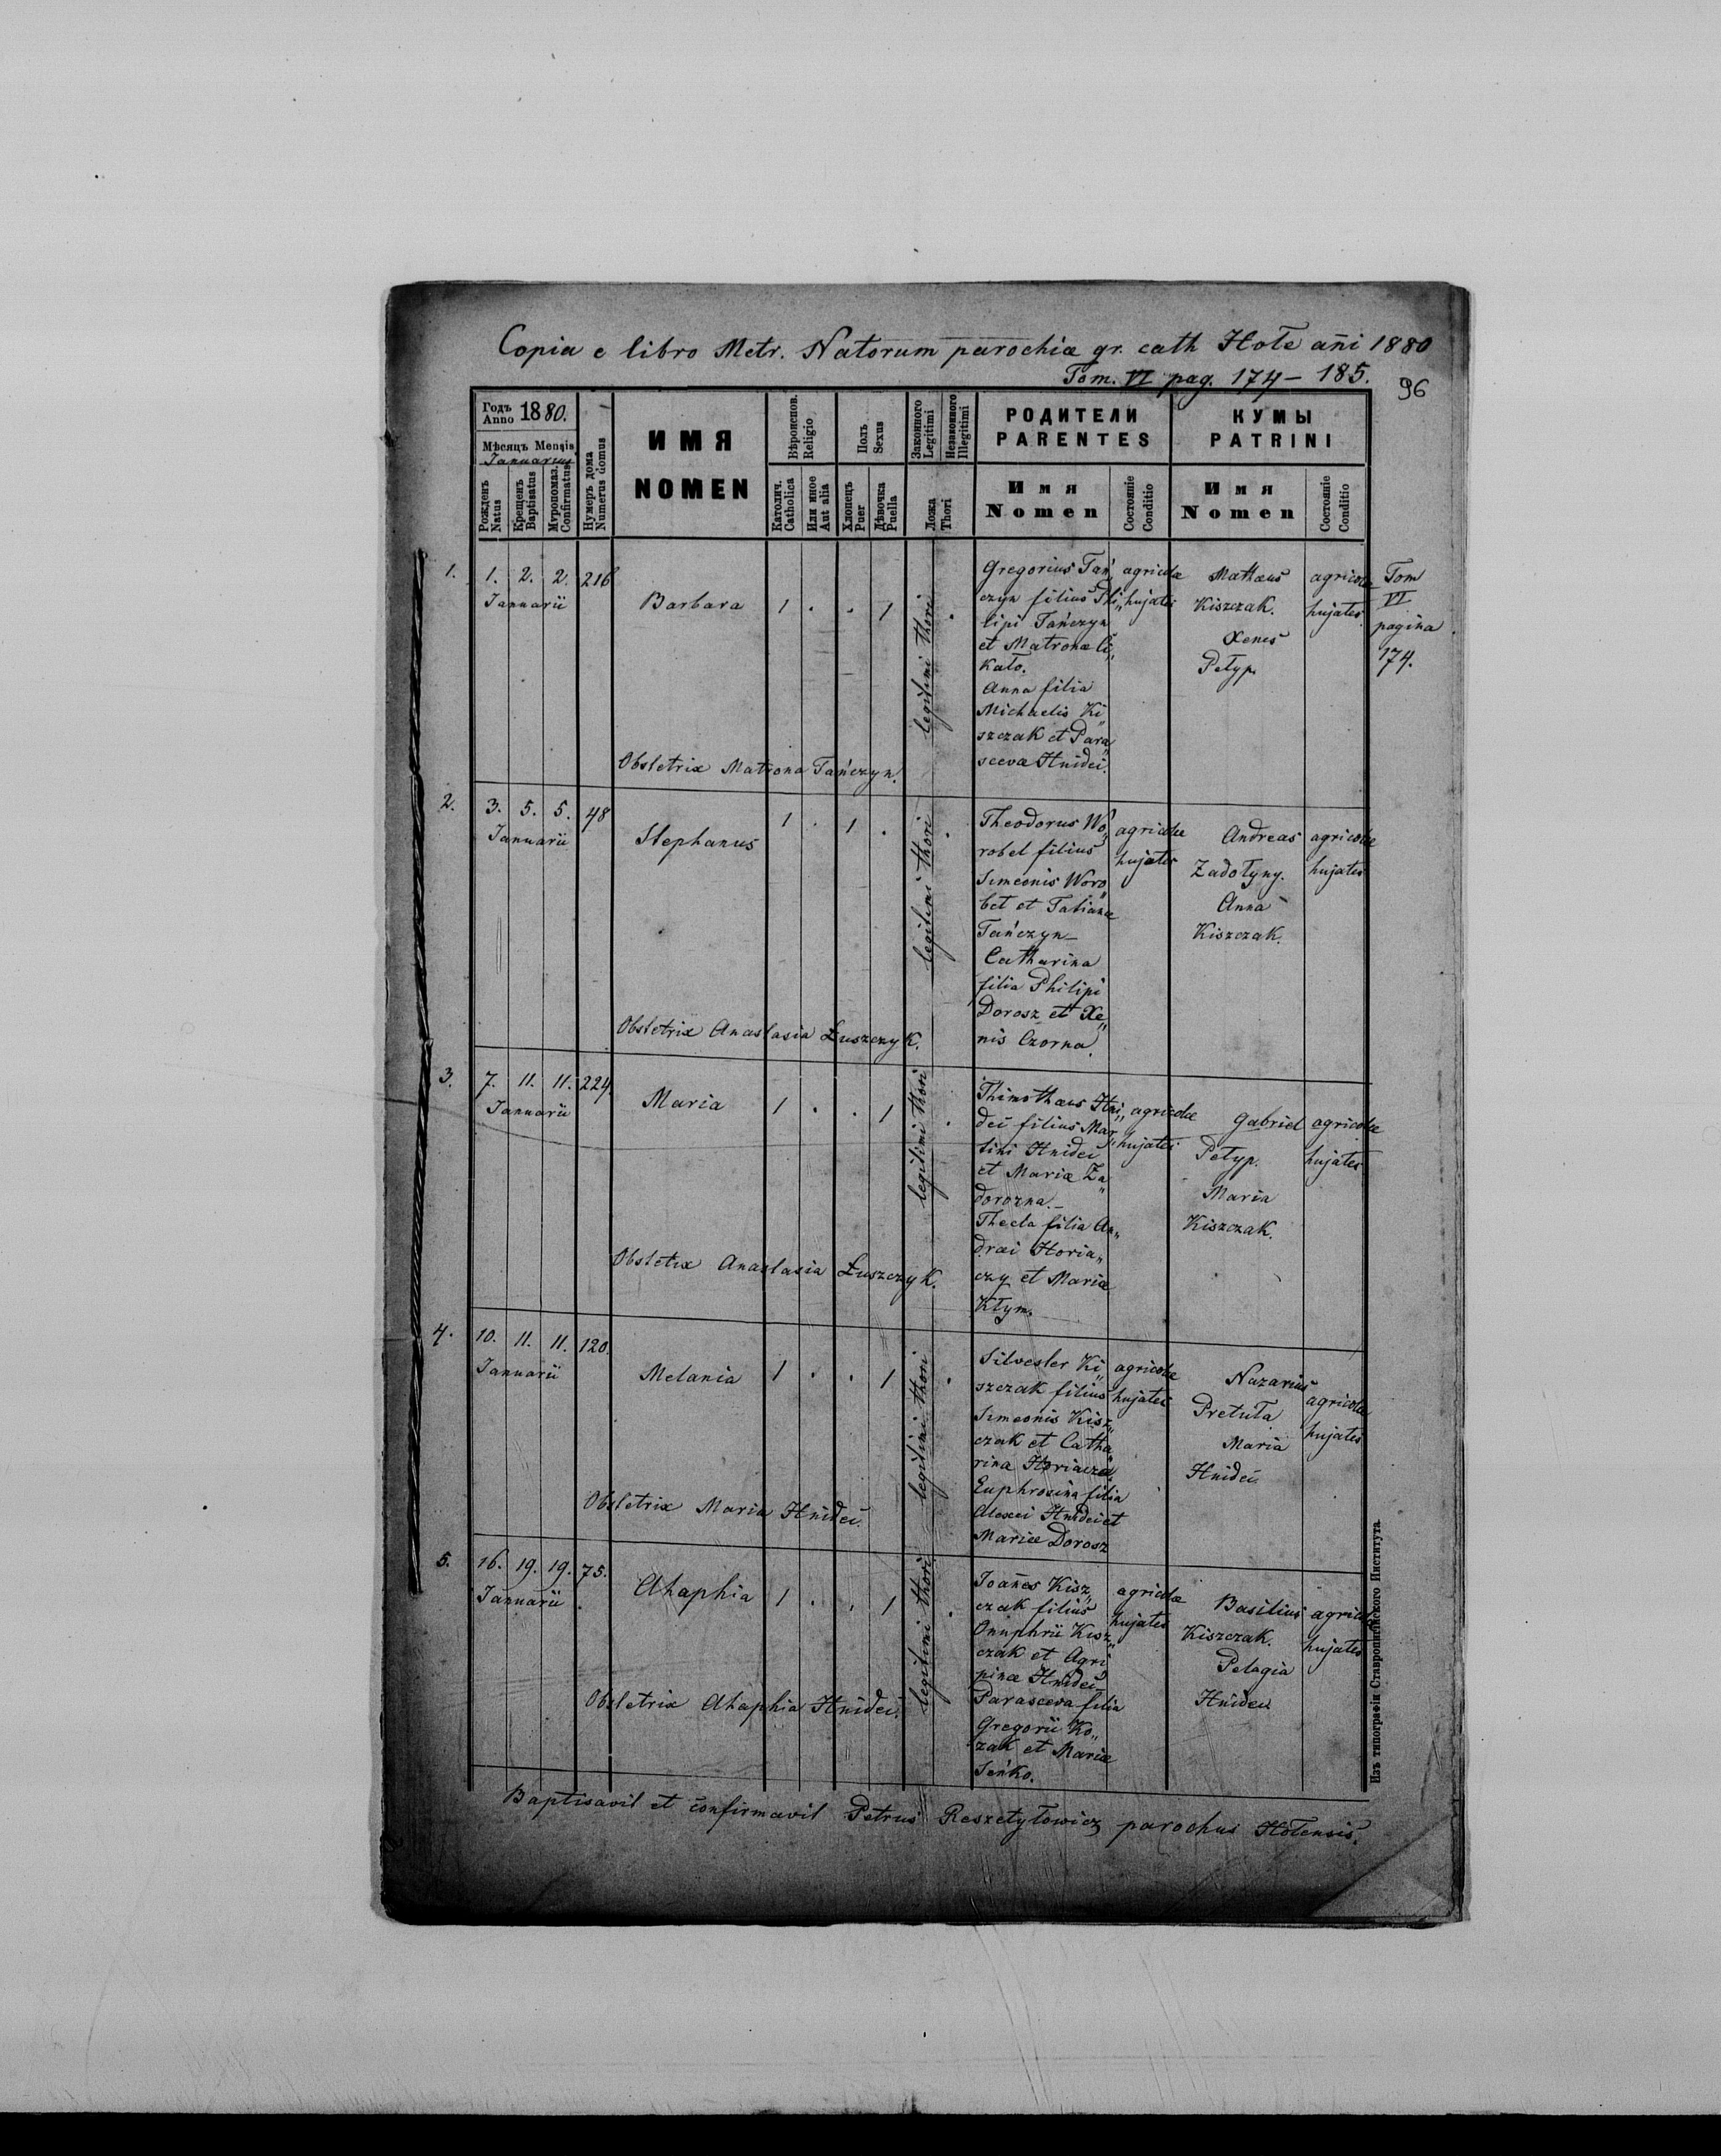 Copia e libro Metr. Natorum parochiæ gr. cath Hołe añi 1880
Tom. VI pag. 174 – 185.
96
Годъ
Anno 1880.
Мѣсяцъ Mensis
Januarius
Рожденъ
Natus
Крещенъ
Baptisatus
Муропомаз.
Confirmatus
Нумеръ дома
Numerus domus
ИМЯ
NOMEN
Вѣроиспов.
Religio
Католич.
Catholica
Или иное
Aut alia
Полъ
Sexus
Хлопецъ
Puer
Дѣвочка
Puella
Законного
Legitimi
Незаконного
Illegitimi
Ложа
Thori
РОДИТЕЛИ
PARENTES
Имя
Nomen
Состояніе
Conditio
КУМЫ
PATRINI
Имя
Nomen
Состояніе
Conditio
1.
1. 2. 2. 216
Januarii
Barbara
1 . . 1
legitimi thori
.
Gregorius Tań„
czyn filius Phi„
lipi Tańczyn
et Matronæ Ci„
kało.
Anna filia
Michaelis Ki„
szczak et Para„
scevæ Hnidei.
agricolæ
hujates
Mathæus
Kiszczak.
Xenes
Petyp.
agricolæ
hujates
Tom
VI
pagina
174.
Obstetrix Matrona Tańczyn.
2.
3. 5. 5. 48
Januarii
Stephanus
1 . 1 .
legitimi thori
.
Theodorus Wo„
robel filius
Simeonis Woro„
bel et Tatianæ
Tańczyn –
Catharina
filia Philipi
Dorosz et Xe„
nis Czorna.
agricolæ
hujates
Andreas
Zadołyny.
Anna
Kiszczak.
agricolæ
hujates
Obstetrix Anastasia Łuszczyk.
3.
7. 11. 11. 224
Januarii
Maria
1 . . 1
legitimi thori
.
Thimothæus Hni„
dei filius Mar„
tini Hnidei
et Mariæ Za„
dorozna. –
Thecla filia An„
dræi Horia„
czy et Mariæ
Kłym.
agricolæ
hujates
Gabriel
Petyp.
Maria
Kiszczak.
agricolæ
hujates
Obstetix Anastasia Łuszczyk.
4.
10. 11. 11. 120.
Januarii
Melania
1 . . 1
legitimi thori
.
Silvester Ki„
szczak filius
Simeonis Kisz„
czak et Catha„
rina Horiacza.
Euphrosina filia
Alexei Hnidei et
Mariæ Dorosz
agricolæ
hujates
Nazarius
Pretuła
Maria
Hnidei
agricolæ
hujates
Obstetrix Maria Hnidei.
5.
16. 19. 19. 75.
Januarii
Ahaphia
1 . . 1
legitimi thori
.
Joañes Kisz„
czak filius
Onuphrii Kisz„
czak et Agri„
pinæ Hnidei
Parasceva filia
Gregorii Ko„
zak et Mariæ
Seńko.
agricolæ
hujates
Basilius
Kiszczak.
Pelagia
Hnidei
agricolæ
hujates
Obstetrix Ahaphia Hnidei.
Изъ типографіи Ставропигійского Института
Baptisavit et confirmavit Petrus Reszetyłowicz parochus Hołensis.